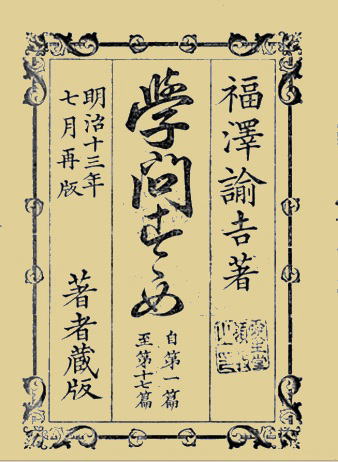 福澤諭吉著
學問すゝめ
自第一篇
至第十七篇
明治十三年
七月再版
著者蔵版